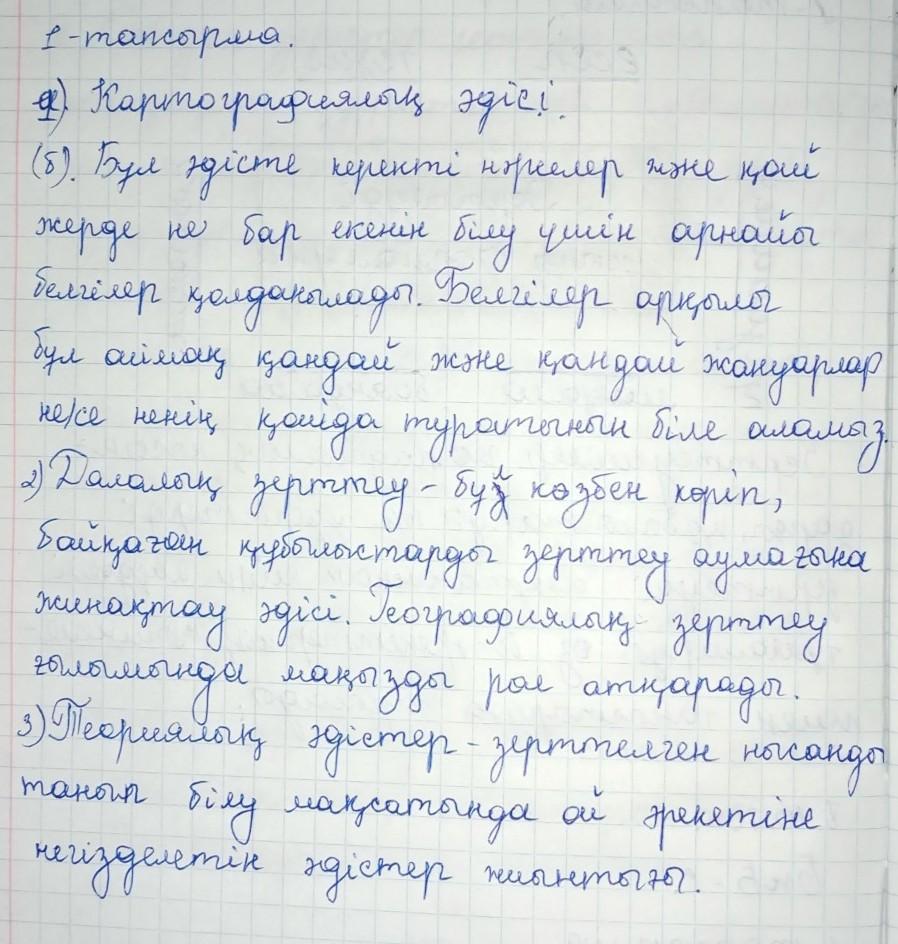 1-тапсырма.
1) Картографиялық әдісі.
(б). Бұл әдісте керекті нәрселер және қай
жерде не бар екенін білу үшін арнайы
белгілер қолданылады. Белгілер арқылы
бұл аймақ қандай және қандай жануарлар
не/се ненің қайда тұратынын біле аламыз.
2) Далалық зерттеу - бұл көзбен көріп,
байқаған құбылыстарды зерттеу аумағына
жинақтау әдісі. Географиялық зерттеу
ғылымында маңызды рөл атқарады.
3) Теориялық әдістер - зерттелген нысанды
танып білу мақсатында ой әрекетіне
негізделетін әдістер жиынтығы.